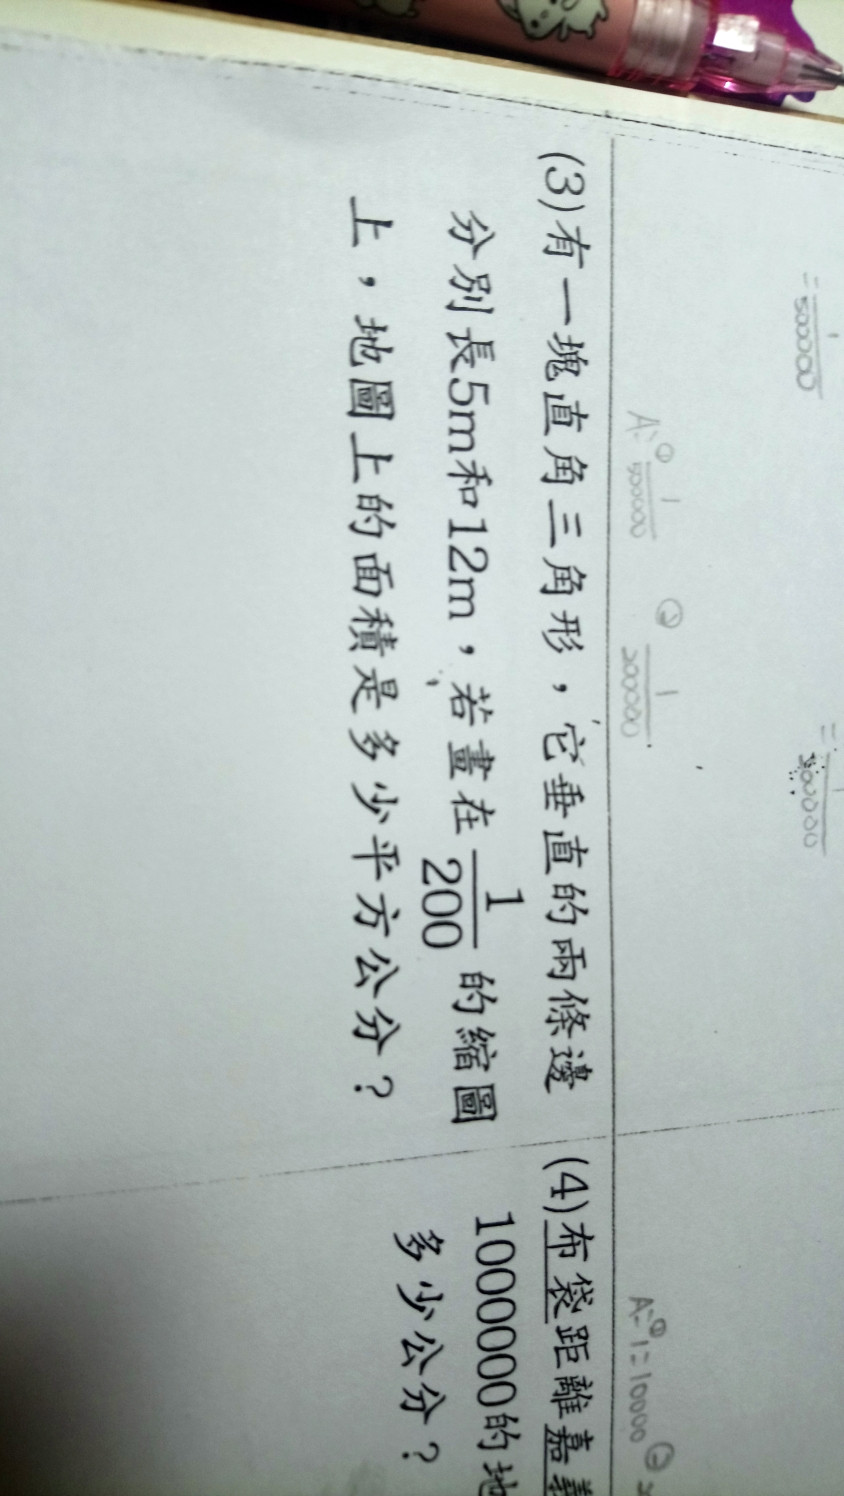 = 1/500000
= 1/200000
A:① 1/500000 ② 1/200000
A:① 1=10000 ②
(3)有一塊直角三角形，它垂直的兩條邊
分別長5m和12m，若畫在 1/200 的縮圖
上，地圖上的面積是多少平方公分？
(4)布袋距離嘉義
1000000的地
多少公分？